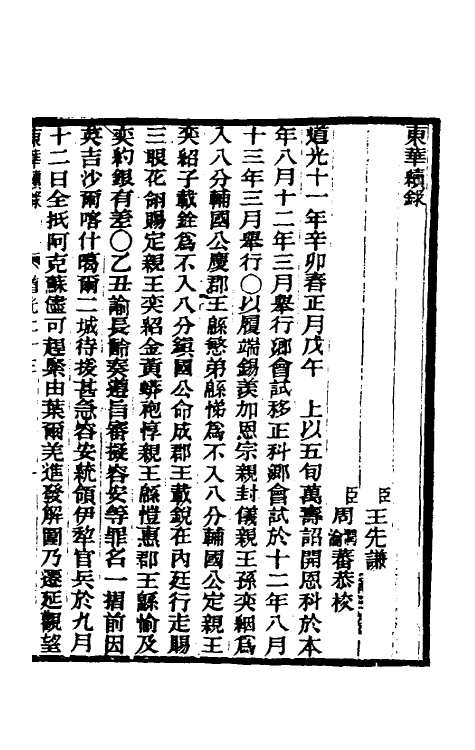 東華續錄
臣王先謙
臣周潤蕃周瀹蕃恭校
道光十一年辛卯春正月戊午　上以五旬萬壽詔開恩科於本
年八月十二年三月舉行鄉會試移正科鄉會試於十二年八月
十三年三月舉行〇以履端錫羨加恩宗親封儀親王孫奕絪為
入八分輔國公慶郡王緜慜弟緜悌為不入八分輔國公定親王
奕紹子載銓為不入八分鎮國公命成郡王載銳在內廷行走賜
三眼花翎賜定親王奕紹金黃蟒袍惇親王緜愷惠郡王緜愉及
奕約銀有差〇乙丑諭長齡奏遵旨審擬容安等罪名一摺前因
英吉沙爾喀什噶爾二城待援甚急容安統領伊犂官兵於九月
十二日全抵阿克蘇儘可趕緊由葉爾羌進發解圍乃遷延觀望